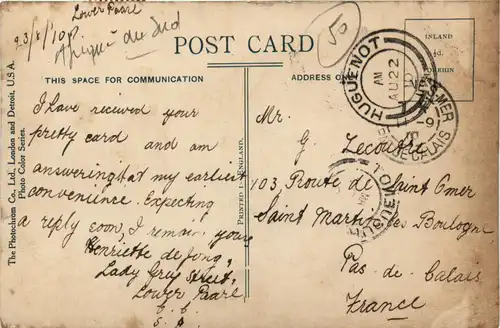 Lower Paarl
23/8/10
Afrique du Sud
50
POST CARD
THIS SPACE FOR COMMUNICATION
ADDRESS
INLAND
½d.
FOREIGN
HUGUENOT
AM
AU 22
PAS-DE-CALAIS
The Photochrom Co., Ltd., London and Detroit, U.S.A.
Photo Color Series.
PRINTED IN ENGLAND.
I have received your
pretty card and am
answering at my earliest
convenience. Expecting
a reply soon, I remain yours
Henriette de Jong,
Lady Grey Street,
Lower Paarl
C. C.
S. A.
Mr.
G. Lecoutre
103, Route de Saint Omer
Saint Martin les Boulogne
Pas-de-Calais
France